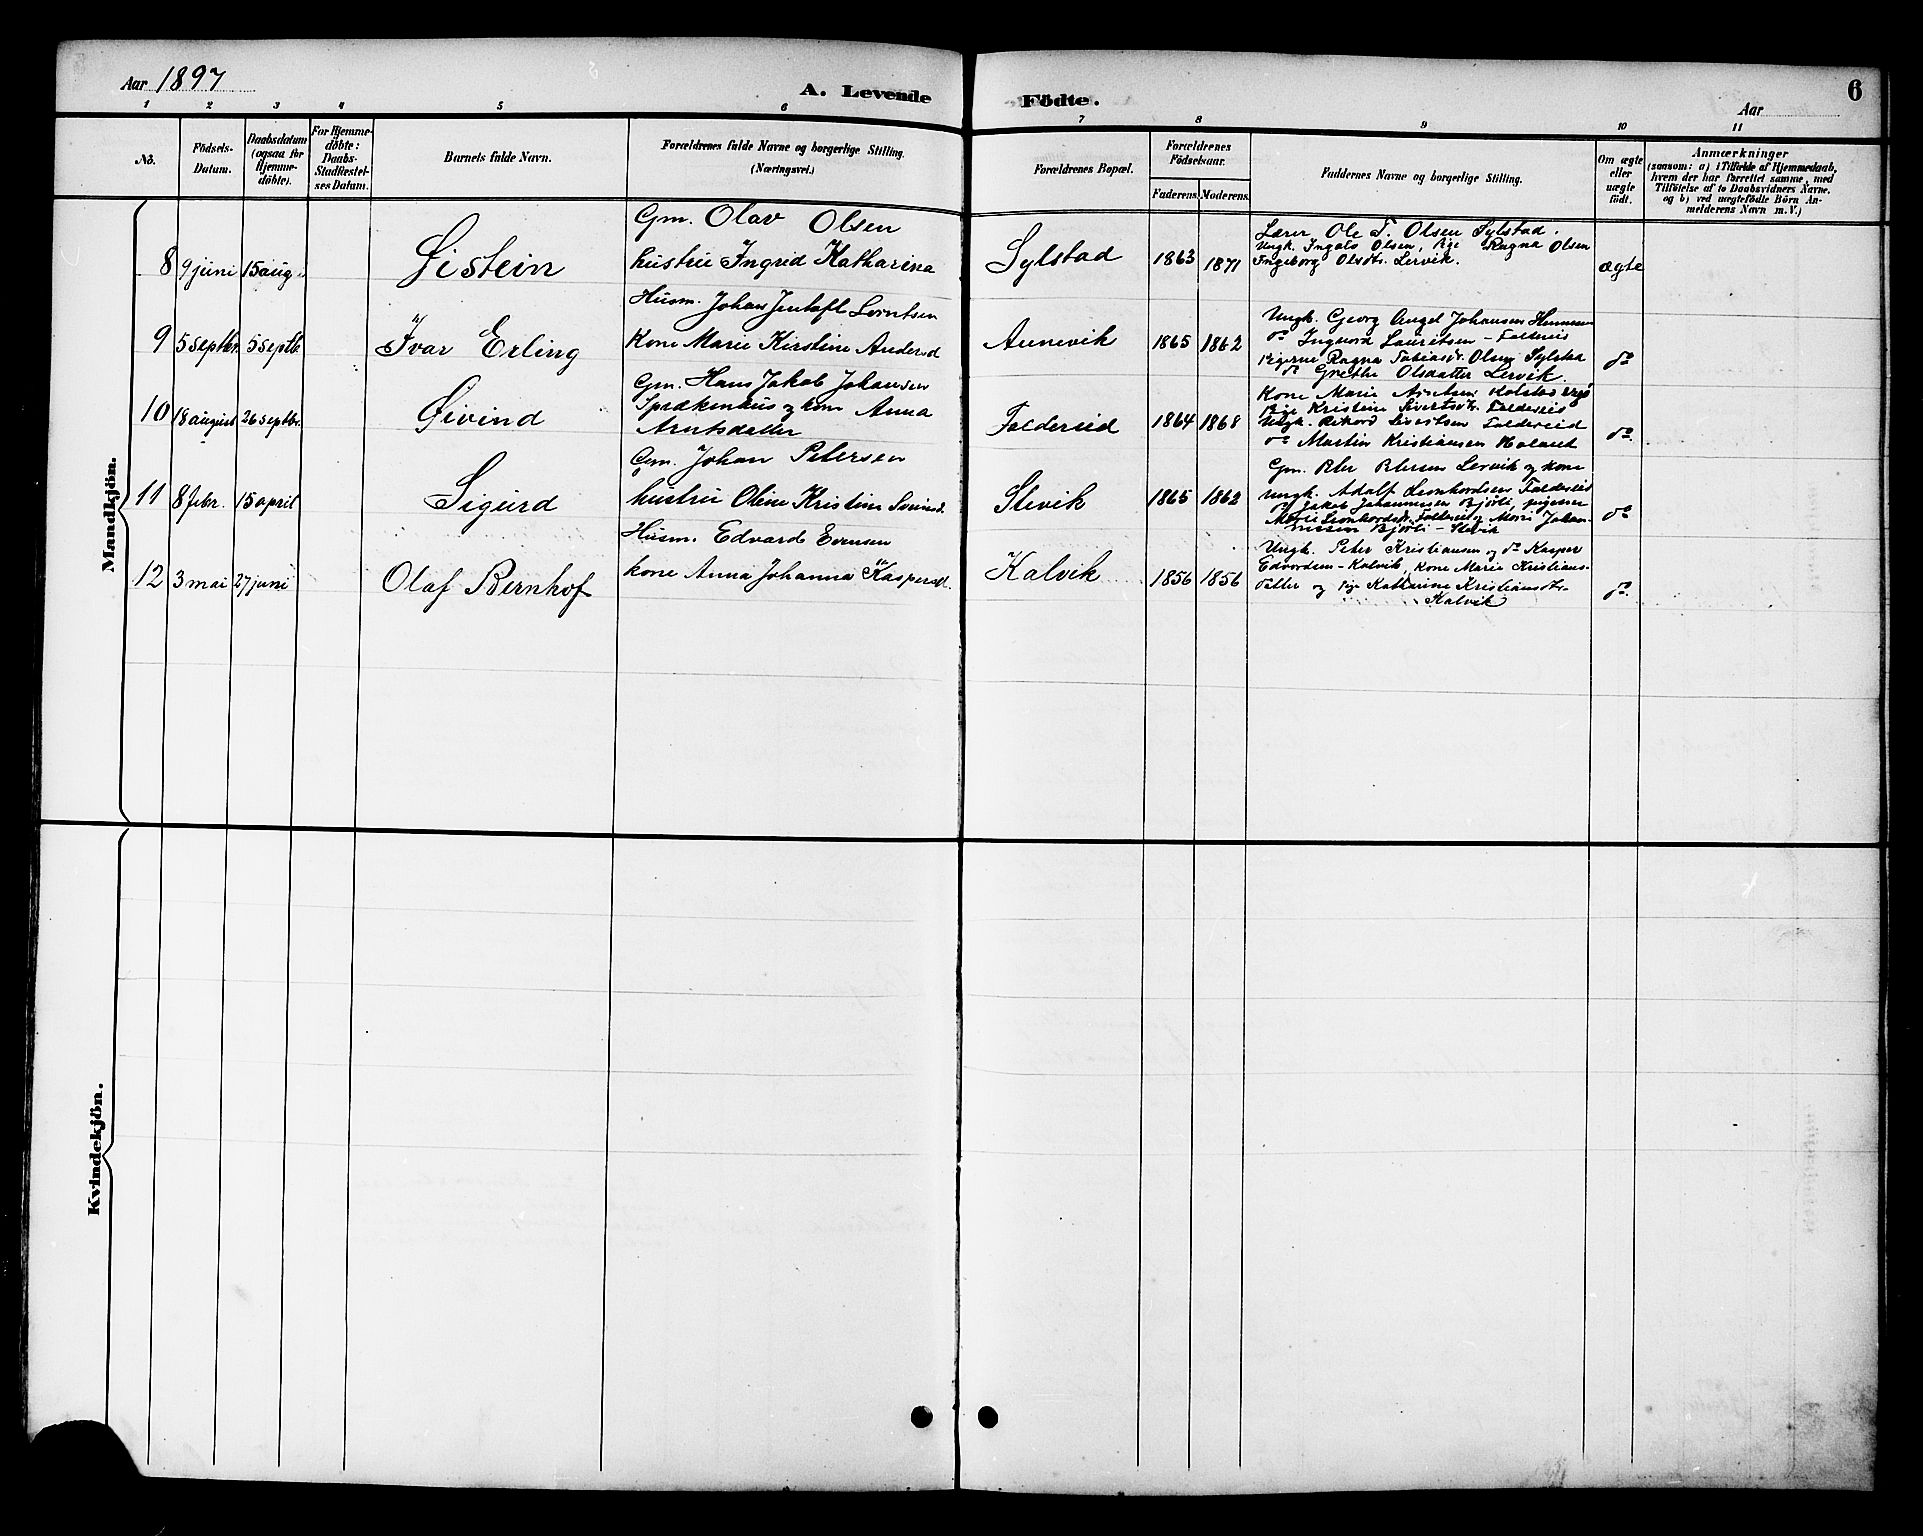 Aar 1897
A. Levende Födte.
6
Aar
1 2 3 4 5 6 7 8 9 10 11
No.
Födsels-Datum.
Daabsdatum (ogsaa for Hjemme-döbte).
For Hjemme-döbte: Daabs-Stadfæstel-ses Datum.
Barnets fulde Navn.
Forældrenes fulde Navne og borgerlige Stilling. (Næringsvei.)
Forældrenes Bopæl.
Forældrenes Födselsaar.
Faderens. Moderens.
Faddernes Navne og borgerlige Stilling.
Om ægte eller uægte født.
Anmærkninger
(saasom: a) i Tilfælde af Hjemmedaab,
hvem der har forrettet samme, med
Tilföielse af to Daabsvidners Navne.
og b) ved uægtefödte Börn An-
melderens Navn m. V.)
Mandkjön.
8 9 juni 15 aug. Øistein
Gm. Olav Olsen
hustru Ingrid Katharina
Sylstad 1863 1871
Lærer Ole T. Olsen Sylstad.
Ungk. Ingals Olsen, Pige Ragna Olsen
Ingeborg Olsdtr. Lervik.
ægte
9 5 septbr. 5 septb. Ivar Erling
Husm. Johan Jentoft Lorntsen
Kone Marie Kirstine Andersd
Aunevik 1865 1862
Ungk. Georg Angel Johansen
do Ingvard Lauritsen - Foldereid
Pigerne Ragna Tobiasdr. Olsen Sylstad
do Grethe Olsdatter Lervik.
do
10 18 august 26 septbr. Øivind
Gm. Hans Jakob Johansen
Sprækenhus og kone Anna
Arntsdatter
Foldereid 1864 1868
Kone Marie
Pige Kristine Sivertsdtr. Foldereid
Ungk. Rikard Sivertsen Foldereid
do Martin Kristiansen
do.
11 8 febr. 15 april Sigurd
Gm. Johan Petersen
hustru Oline Kristine
Slevik 1865 1862
Gm. Peter Petersen Lervik og kone
Ungk. Adolf Leonhardsen Foldereid
do Jakob Johannessen Bjørli, pigerne
Marie Leonhardsdtr. Foldereid og Marie Johan-
nessen Bjørli - Slevik
do
12 3 mai 27 juni Olaf Bernhof
Husm. Edvard Evensen
kone Anna Johanna Kaspersd.
Kalvik 1856 1856
Ungk. Peter Kristiansen og do Kasper
Edvardsen - Kalvik, Kone Marie Kristians-
datter og pige Katharine Kristiansdtr.
Kalvik
do.
Kvindekjön.